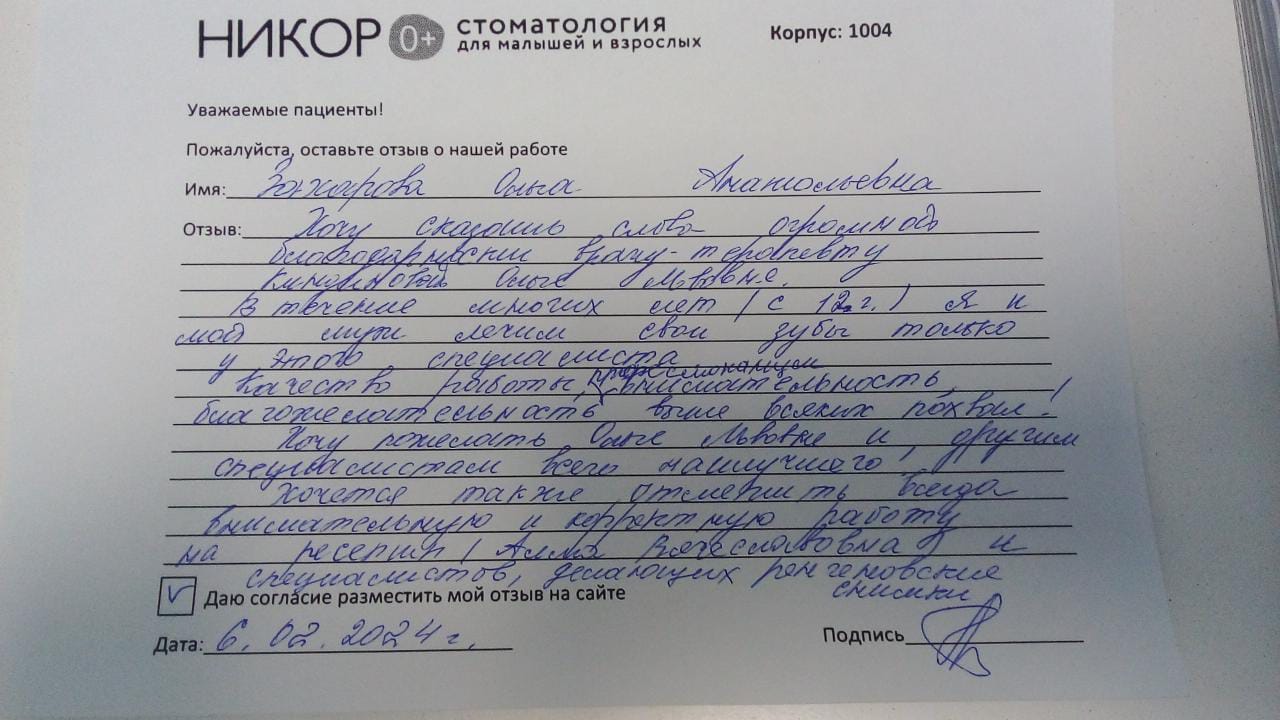 НИКОР 0+ СТОМАТОЛОГИЯ
ДЛЯ МАЛЫШЕЙ И ВЗРОСЛЫХ
Корпус: 1004
Уважаемые пациенты!
Пожалуйста, оставьте отзыв о нашей работе
Имя: Ольга Анатольевна
Отзыв: Хочу сказать слова огромной
благодарности врачу-терапевту
Ольге Львовне.
В течение многих лет (с 12 г.) я и
мой муж лечим свои зубы только
у этого специалиста
Качество работы, профессионализм
внимательность,
благожелательность выше всяких похвал!
Хочу пожелать Ольге Львовне и другим
специалистам всего наилучшего!
Хочется также отметить всегда
внимательную и корректную работу
на ресепшн (Алла Вячеславовна) и
специалистов, делающих ренгеновские
снимки
Даю согласие разместить мой отзыв на сайте
Дата: 6.02.2024 г.
Подпись